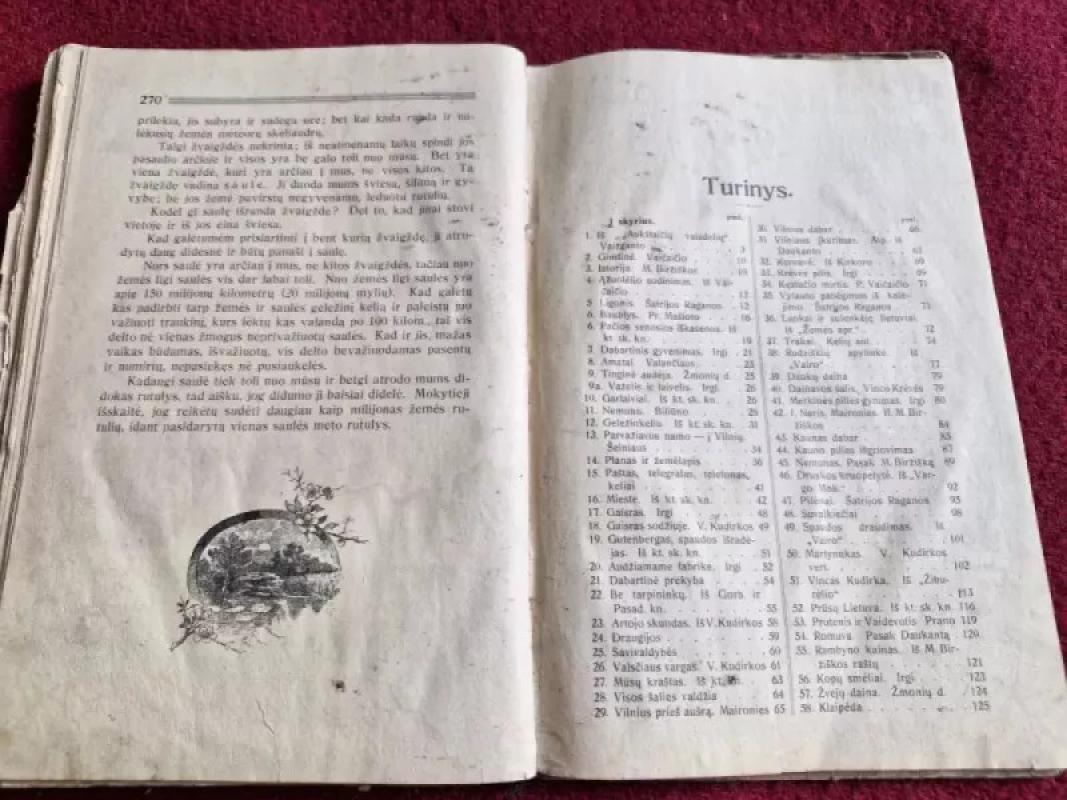 270
prilekia, jis subyra ir sudega ore; bet kai kada randa ir nu-
lėkusių žemėn meteorų skeliaudrų.
Taigi žvaigždės nekrinta; iš neatmenamų laikų spindi jos
pasaulio arčioje ir visos yra be galo toli nuo mūsų. Bet yra
viena žvaigždė, kuri yra arčiau į mus, ne visos kitos. Ta
žvaigždė vadina saule. Ji duoda mums šviesą, šilimą ir gy-
vybę; be jos žemė pavirstų negyvenamu, leduotu rutuliu.
Kodel gi saulę išranda žvaigžde? Dėl to, kad jinai stovi
vietoje ir iš jos eina šviesa.
Kad galėtumėm prisiartinti į bent kurią žvaigždę, ji atro-
dytų daug didesnė ir būtų panaši į saulę.
Nors saulė yra arčiau į mus, ne kitos žvaigždės, tačiau nuo
žemės ligi saulės vis dar labai toli. Nuo žemės ligi saulės yra
apie 150 milijonų kilometrų (20 milijonų mylių). Kad galėtų
kas padirbti tarp žemės ir saulės geležinį kelią ir paleistų juo
važiuoti traukinį, kurs lėktų kas valandą po 100 kilom., tai vis
dėlto nė vienas žmogus neprivažiuotų saulės. Kad ir jis, mažas
vaikas būdamas, išvažiuotų, vis dėlto bevažiuodamas pasentų
ir numirtų, nepasiekęs nė pusiaukelės.
Kadangi saulė tiek toli nuo mūsų ir betgi atrodo mums di-
dokas rutulys, tad aišku, jog didumo ji baisiai didelė. Mokytieji
išskaitė, jog reikėtų sudėti daugiau kaip milijonas žemės ru-
tulių, idant pasidarytų vienas saulės meto rutulys.
Turinys.
I skyrius.
1. Iš „Aukštaičių vaizdelių"
Vaižganto 3
2. Giminė. Vaičaičio 10
3. Istorija. M. Biržiškos 10
4. Ąžuolėlio sodinimas. Iš Vai-
čaičio 12
5. Ligonis. Šatrijos Raganos 12
6. Baublys. Pr. Mašioto 16
6. Pačios senosios iškasenos. Iš
kt. sk. kn. 19
7. Dabartinis gyvenimas. Irgi 21
8. Amatai. Valančiaus 23
9. Tinginė audėja. Žmonių d. 25
9a. Važelis ir laivelis. Irgi 26
10. Garlaiviai. Iš kt. sk. kn. 26
11. Nemunu. Biliūno 26
12. Geležinkeliu Iš kt. sk. kn. 31
13. Parvažiavus namo — į Vilnių.
Šeiniaus 34
14. Planas ir žemėlapis 36
15. Paštas, telegrafas, telefonas,
keliai 41
16. Mieste. Iš kt. sk. kn. 42
17. Gaisras. Irgi 48
18. Gaisras sodžiuje. V. Kudirkos 49
19. Gutenbergas, spaudos išradė-
jas. Iš kt. sk. kn. 51
20. Audžiamame fabrike. Irgi 52
21. Dabartinė prekyba 54
22. Be tarpininkų. Iš Gorb. ir
Pasad. kn. 55
23. Artojo skundas. Iš V. Kudirkos 58
24. Draugijos 59
25. Savivaldybės 60
26. Valsčiaus vargas. V. Kudirkos 61
27. Mūsų kraštas. Iš kt. 63
28. Visos šalies valdžia 64
29. Vilnius prieš aušrą. Maironies 65
30. Vilnius dabar 66
31. Vilniaus įkūrimas. Iš
Daukanto 67
32. Kernavė. 69
33. Krėvės pilis. Irgi 69
34. Kęstučio mirtis. P. Vaičaičio 71
35. Vytauto pabėgimas iš kalė-
jimo. Šatrijos Raganos 71
36. Lenkai ir sulenkėję lietuviai.
Iš „Žemės apr." 72
37. Trakai. Kelių aut. 74
38. Rudziškių apylinkė. Iš
„Vairo" 77
39. Daukų daina 79
40. Dainavos šalis. Vinco Krėvės 79
41. Merkinės pilies gynimas. Irgi 80
42. Į Nerį. Maironies. Iš M. Bir-
žiškos 84
43. Kaunas dabar 85
44. Kauno pilies išgriovimas 87
45. Nemunas. Pasak M. Biržišką 89
46. Druskos kruopelytė. Iš „Var-
go Mok." 92
47. Pilėnai. Šatrijos Raganos 93
48. Suvalkiečiai 98
49. Spaudos draudimas. Iš
„Vairo" 101
50. Martynukas. V. Kudirkos
vert. 102
51. Vincas Kudirka. Iš „Žibu-
rėlio" 113
52. Prūsų Lietuva. Iš kt. sk. kn. 116
53. Prutenis ir Vaidevutis Prano 119
54. Romuva. Pasak Daukantą 120
55. Rambyno kalnas. Iš M. Bir-
žiškos raštų 121
56. Kopų smėliai. Irgi 123
57. Žvejų daina. Žmonių d. 124
58. Klaipėda 125